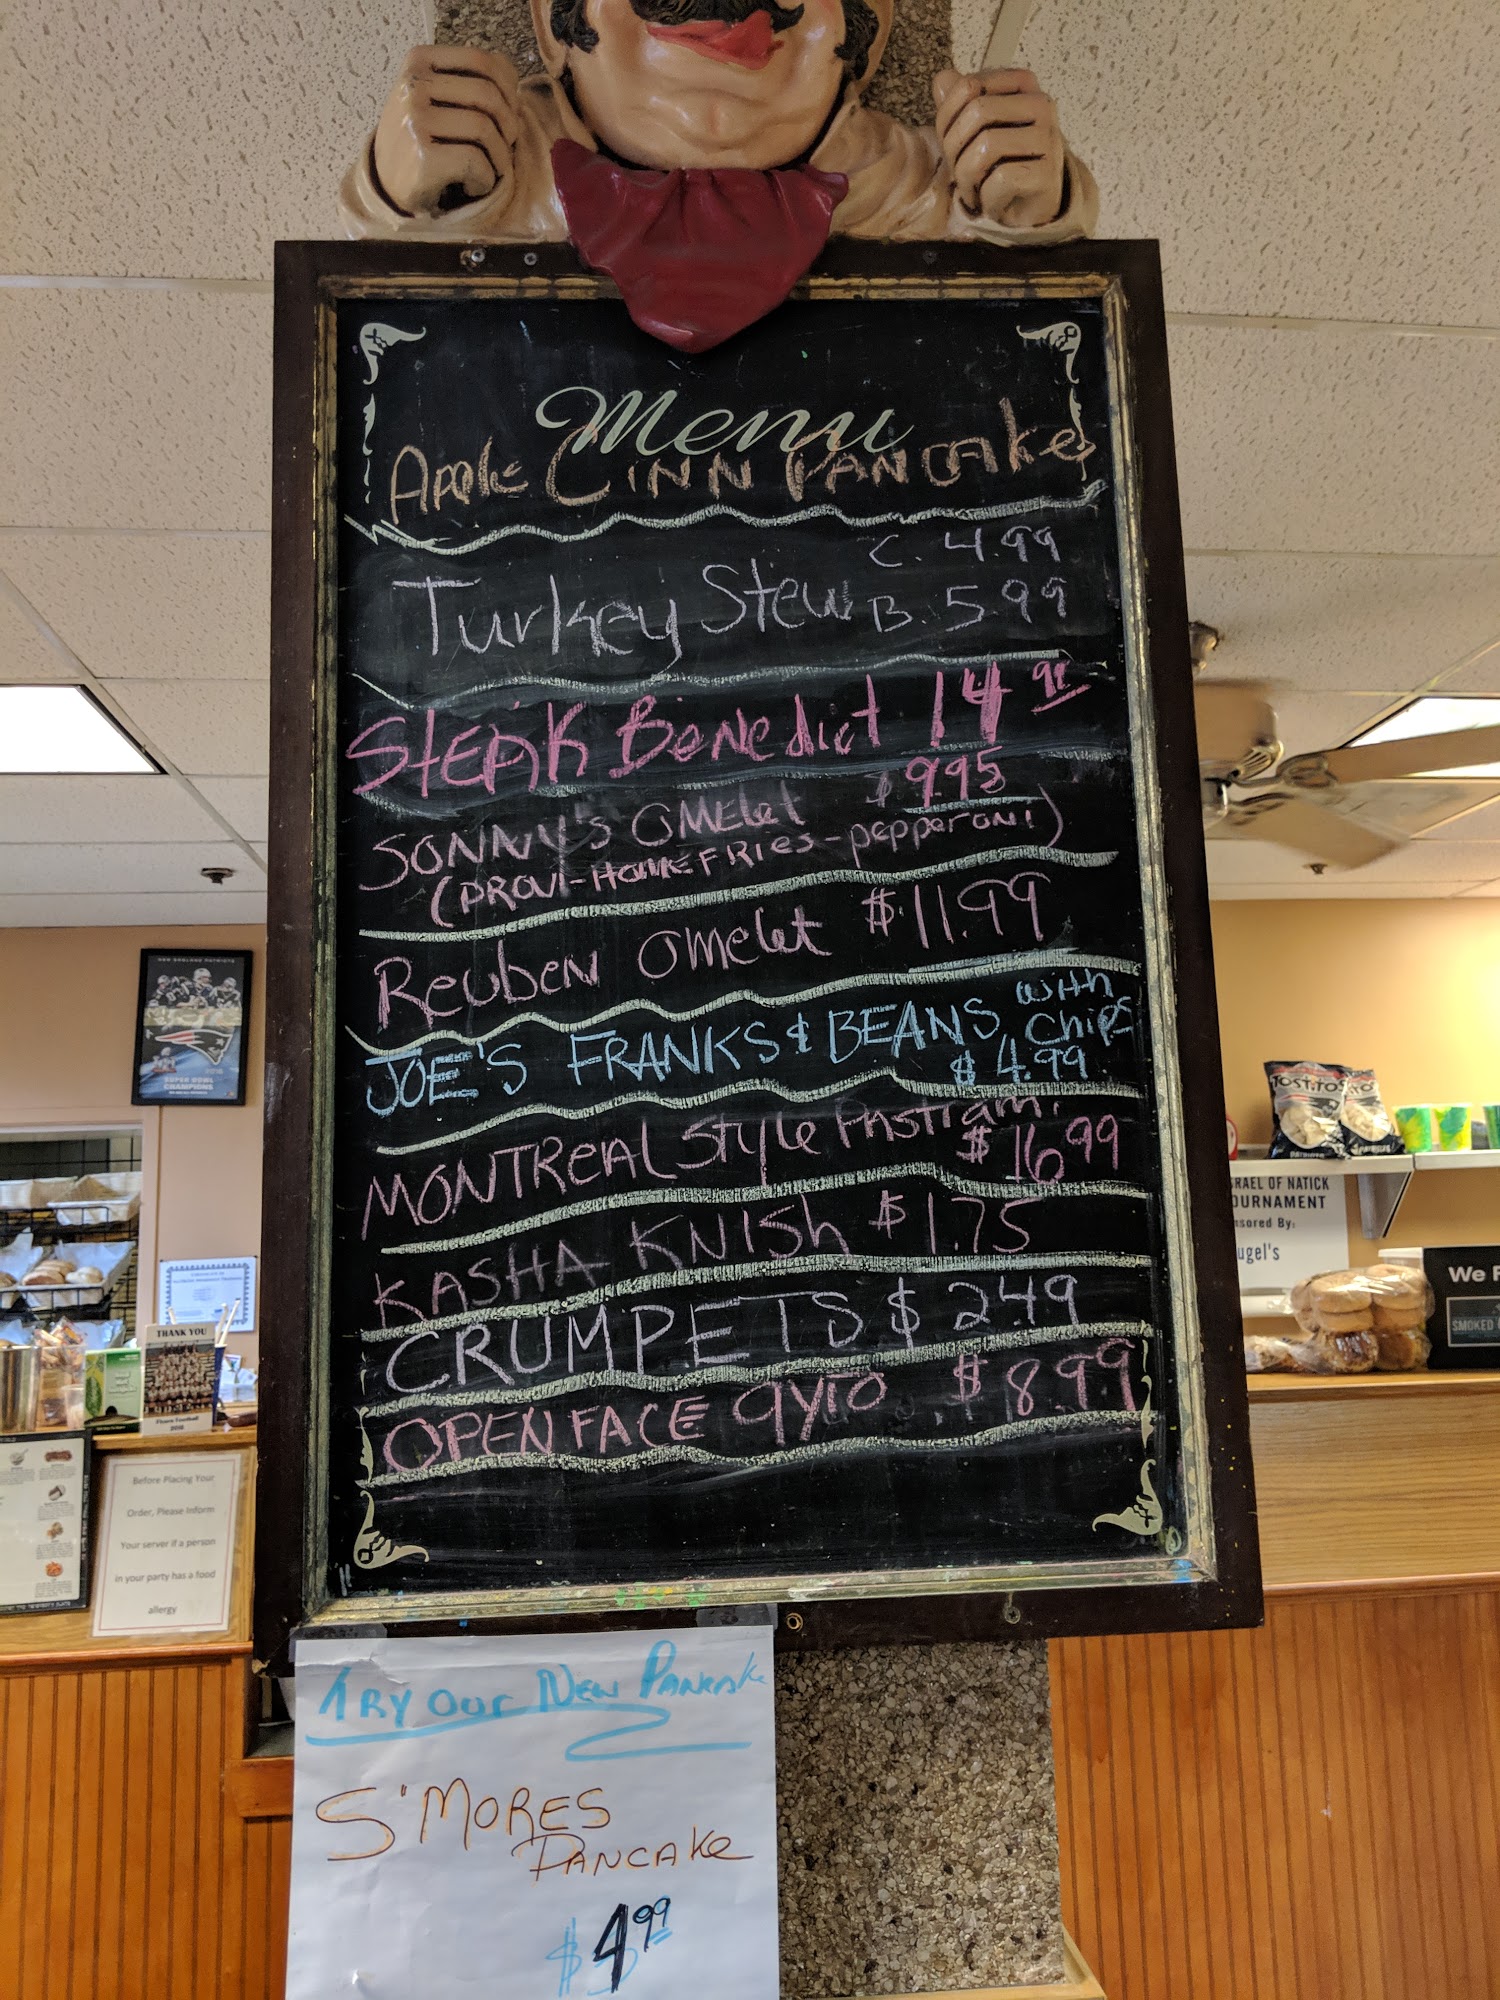 Menu
Apple Cinn Pancakes
Turkey Stew C. 4.99
B. 5.99
Steak Benedict 14
Sonny's Omelet $9.95
(Provi-Homefries-pepperoni)
Reuben Omelet $11.99
Joe's Franks & Beans with
Chips
$4.99
Montreal Style Pastrami
$16.99
Kasha Knish $1.75
Crumpets $2.49
Open Face Gyro $8.99
Try Our New Pancake
S'mores
Pancake
$4.99
NEW ENGLAND PATRIOTS
SUPER BOWL
CHAMPIONS
THANK YOU
Before Placing Your
Order, Please Inform
Your server if a person
in your party has a food
allergy
TOSTITOS
SRAEL OF NATICK
OURNAMENT
nsored By:
ugel's
We
SMOKED